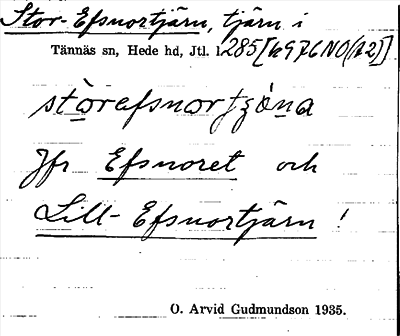 Stor-Efsnortjärn, tjärn i
Tännäs sn, Hede hd, Jtl. l. 285 [497 6 NO (A2)]
stòrefsnortjɷ́na
Jfr Efsnoret och
Lill-Efsnortjärn!
O. Arvid Gudmundson 1935.